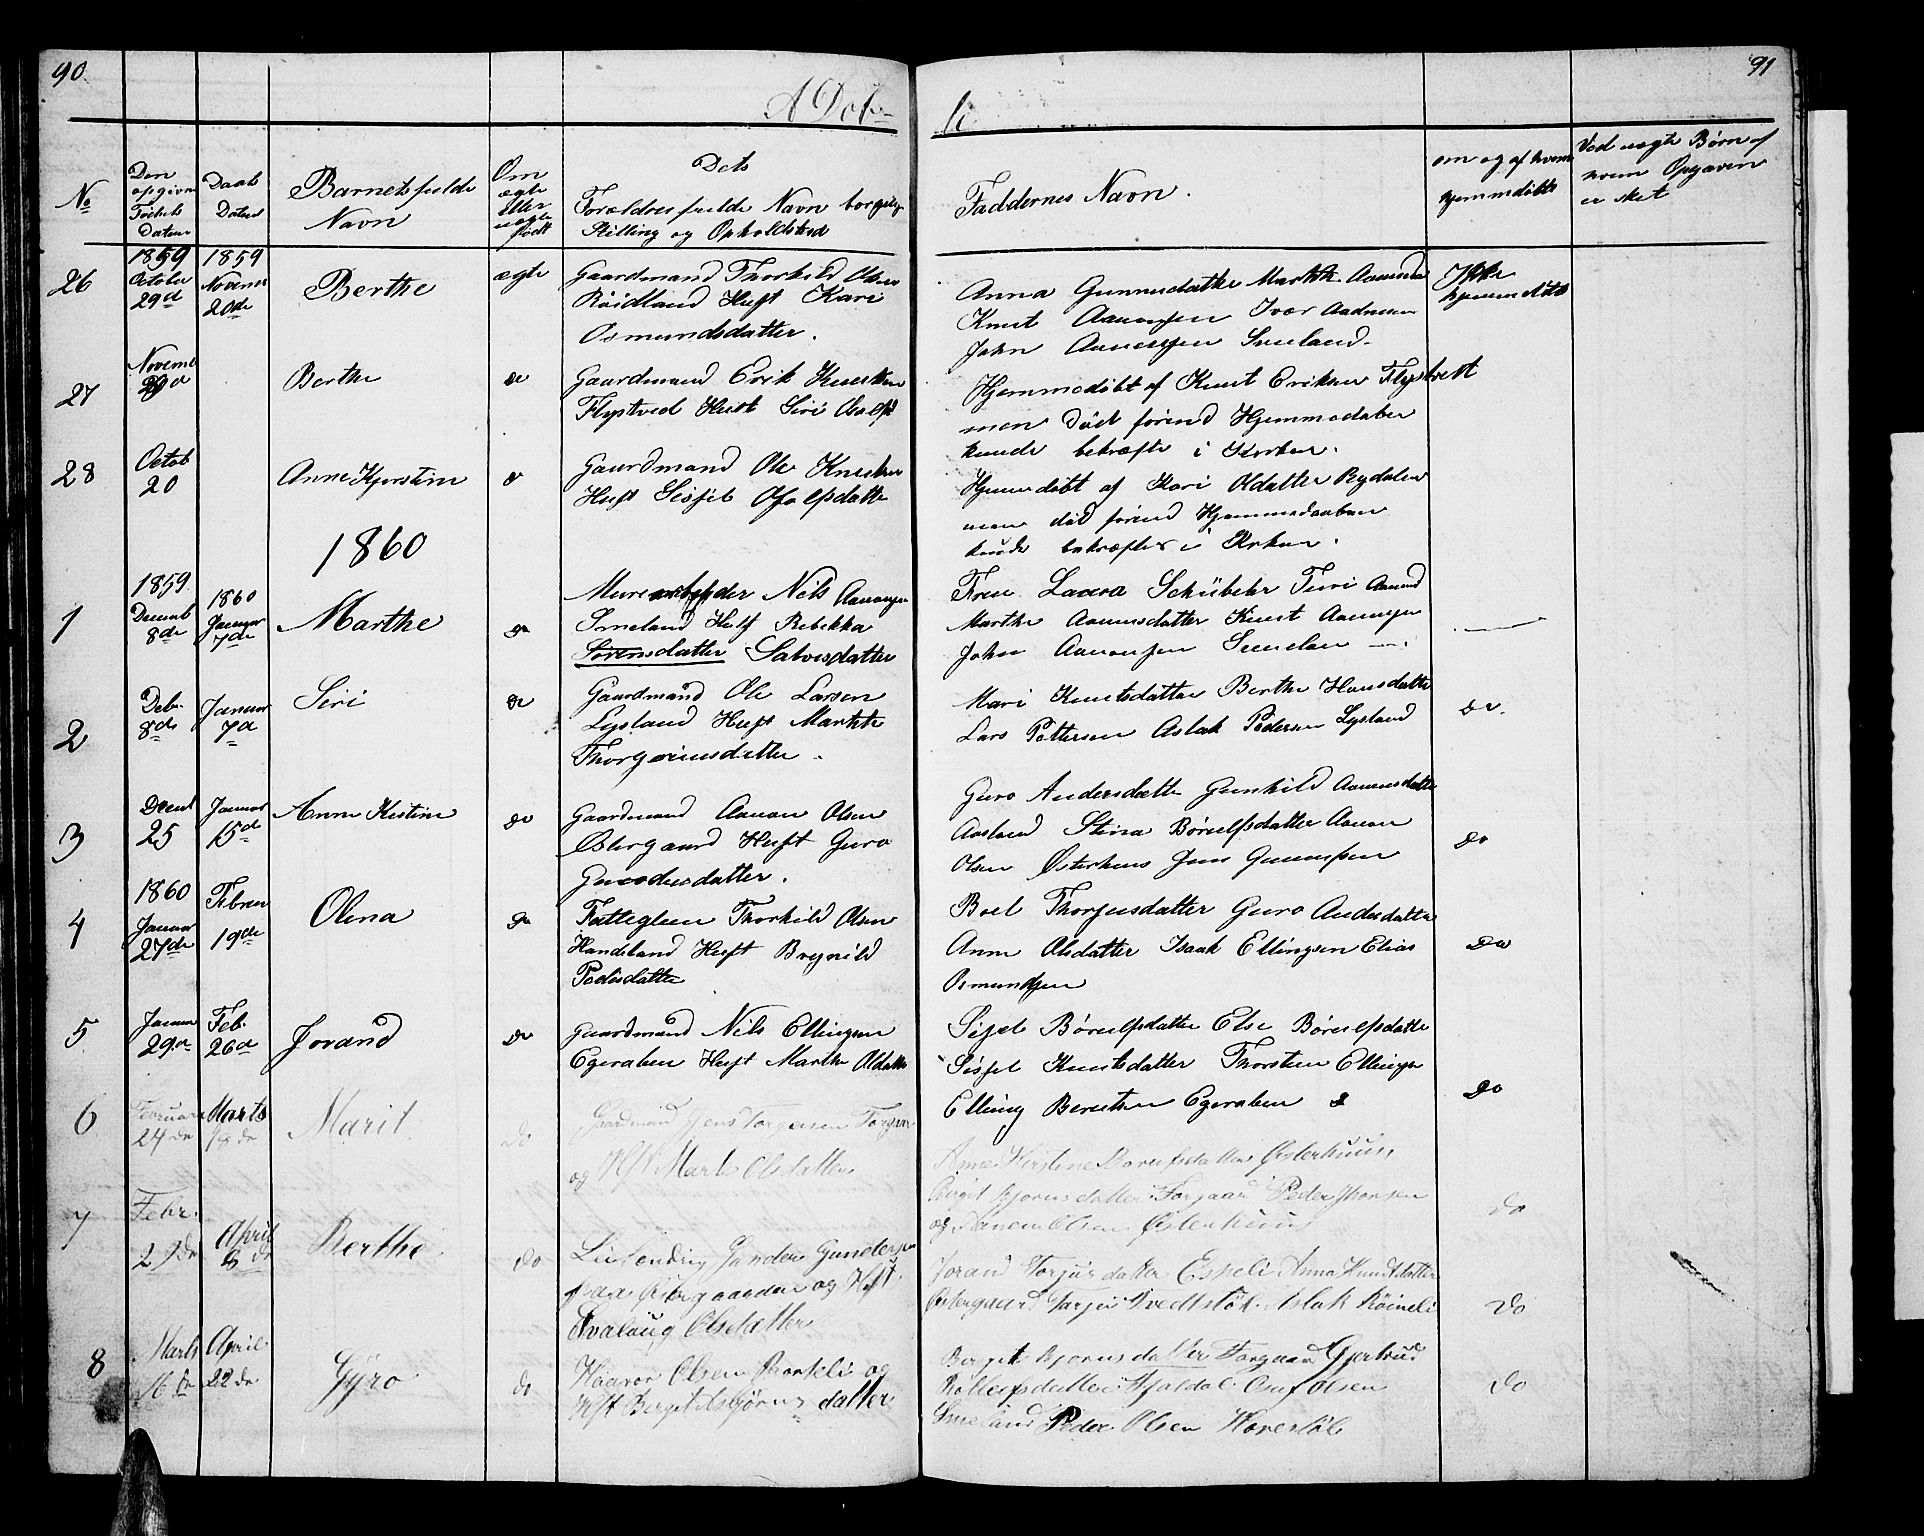 90
91
A Dob-
te
No
Den opgivne Fødsels Datum
Daabs Datum
Barnets fulde Navn
Om ægte eller uægte født
Dets Forældres fulde Navn borgerlige Stilling og Opholdsted
Faddernes Navn.
om og af hvem hjemmedøbt
Ved uægte Børn af hvem Opgaven er sket
26
1859
October
29d
1859
Novemr
20de
Berthe
ægte
Gaardmand Thorkild Olsen
Röidland Hust Kari
Osmundsdatter.
Anna Gunnusdatter Marthe
Knut Aanonsen Ivar
John Aanonsen Smeland
Ikke
hjemmedøbt
27
Novemb
29d
Berthe
do
Gaardmand Erik Knutsen
Flystved Hust Siri
Hjemmedøbt af Knut Eriksen Flystvett
men död förend Hjemmedaben
kunde bekræfte i Kirken.
28
Octob
20
Anne Kjerstine
do
Gaardmand Ole Knutsen
Hust Sissel
Hjemmdöbt af Kari Olsdatter Rydalen
men död förend Hjemmedaaben
kunde bekræftes i Kirken.
1860
1
1859
Decemb
8de
1860
Januar
7de
Marthe
do
Murearbeider Nils Aanonsen
Smeland Hust Rebekka
Sörensdatter Salvesdatter
Frue Laura Schübeler Turi
Marthe Aanonsdatter Knut Aanonsen
John Aanonsen Smeland
2
Debr.
8de
Januar
7d
Siri
do
Gaardmand Ole Larsen
Lysland Hust Marthe
Thorgrimsdatter.
Mari Knutsdatter Berthe Hansdatter
Lars Pettersen Aslak Pedersen Lysland
do.
3
Decmb
25
Januar
15d
Anne Kistine
do
Gaardmand Aanon Olsen
Östergaard Hust Guro
Guro Andersdatter Gunhild Aanonsdatter
Aasland Stina Börulfsdatter Aanon
Olsen Österhus Jens Gunnufsen
do
4
1860
Januar
27de
Februar
19de
Olena
do
Fattiglem Thorkild Olsen
Handeland Hust Brynild
Pedersdatter
Boel Thorjusdatter Guro Andersdatter
Anne Olsdatter Isaak Ellingsen Elias
Osmundsen
do
5
Januar
29de
Feb.
26d
Jorand
do
Gaardmand Nils Ellingsen
Egeraben Hust Marthe Olsdatter
Sissel Börulfsdatter Else Börulfsdatter
Sissel Knutsdatter Thorsten Ellingsen
Elling Berntsen Egeraben
do
6
Februar
24de
Marts
18de
Marit
do
Gaardmand Jens Torgersen Torgaar
og Hst Marte Olsdatter
Anne Kirstine Borufsdatter Österhuus,
Birgit Bjornsdatter Torgaard Peder Jhonsen
og Olsen Österhuus
do
7
Febr.
29de
April
8de
Berthe
do
Leilending Gunder Gundersen
paa Östergaarden og Hst.
Svalaug Olsdatter
Jorand Torjusdatter Espeli Anna Knudtsdatter
Östergaard Tarjei Tvedtstöl Aslak Röineli
do
8
Marts
16de
April
22de
Gyro
do
Haavor Olsen Borteli og
Hst Bergit Asbjörns-datter
Bergit Bjornsdatter Torgaar Gjertrud
Rolleifsdatter Hjaldal Oluf Olsen
Smeland Peder Olsen Hovestöl
do